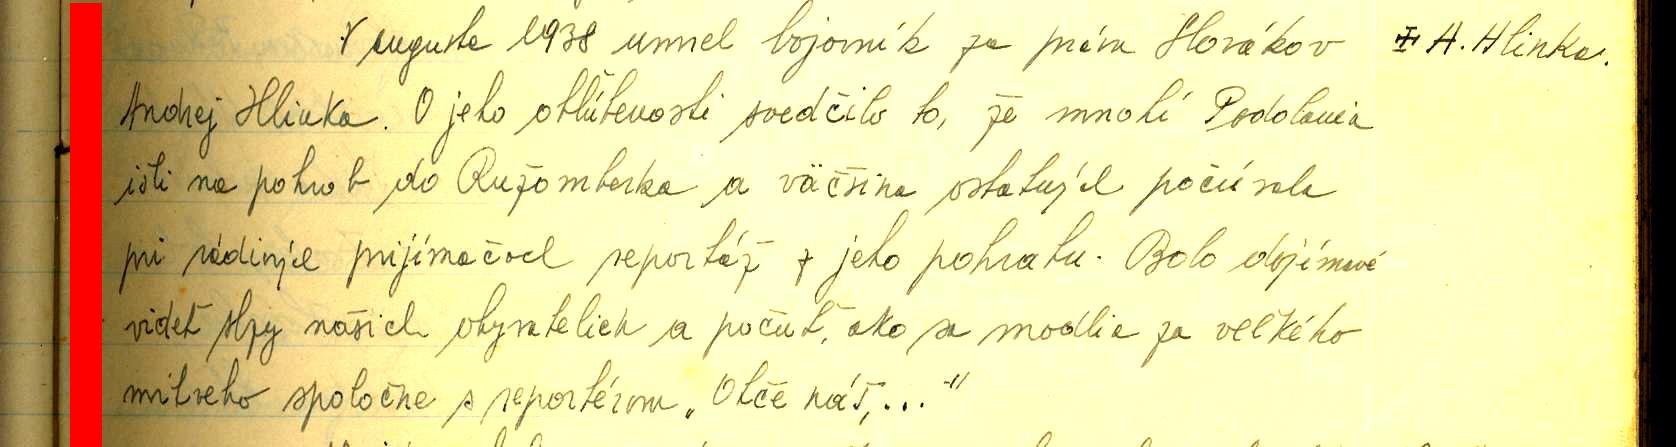 V auguste 1938 umrel bojovník za práva Slovákov
‡ A. Hlinka.
Andrej Hlinka. O jeho obľúbenosti svedčilo to, že mnohí Podolania
išli na pohreb do Ružomberka a väčšina ostatných počúvala
pri rádiových prijímačoch reportáž z jeho pohrabu. Bolo dojímavé
videť slzy našich obyvateliek a počuť, ako sa modlia za veľkého
mŕtveho spoločne s reportérom „Otče náš,..."